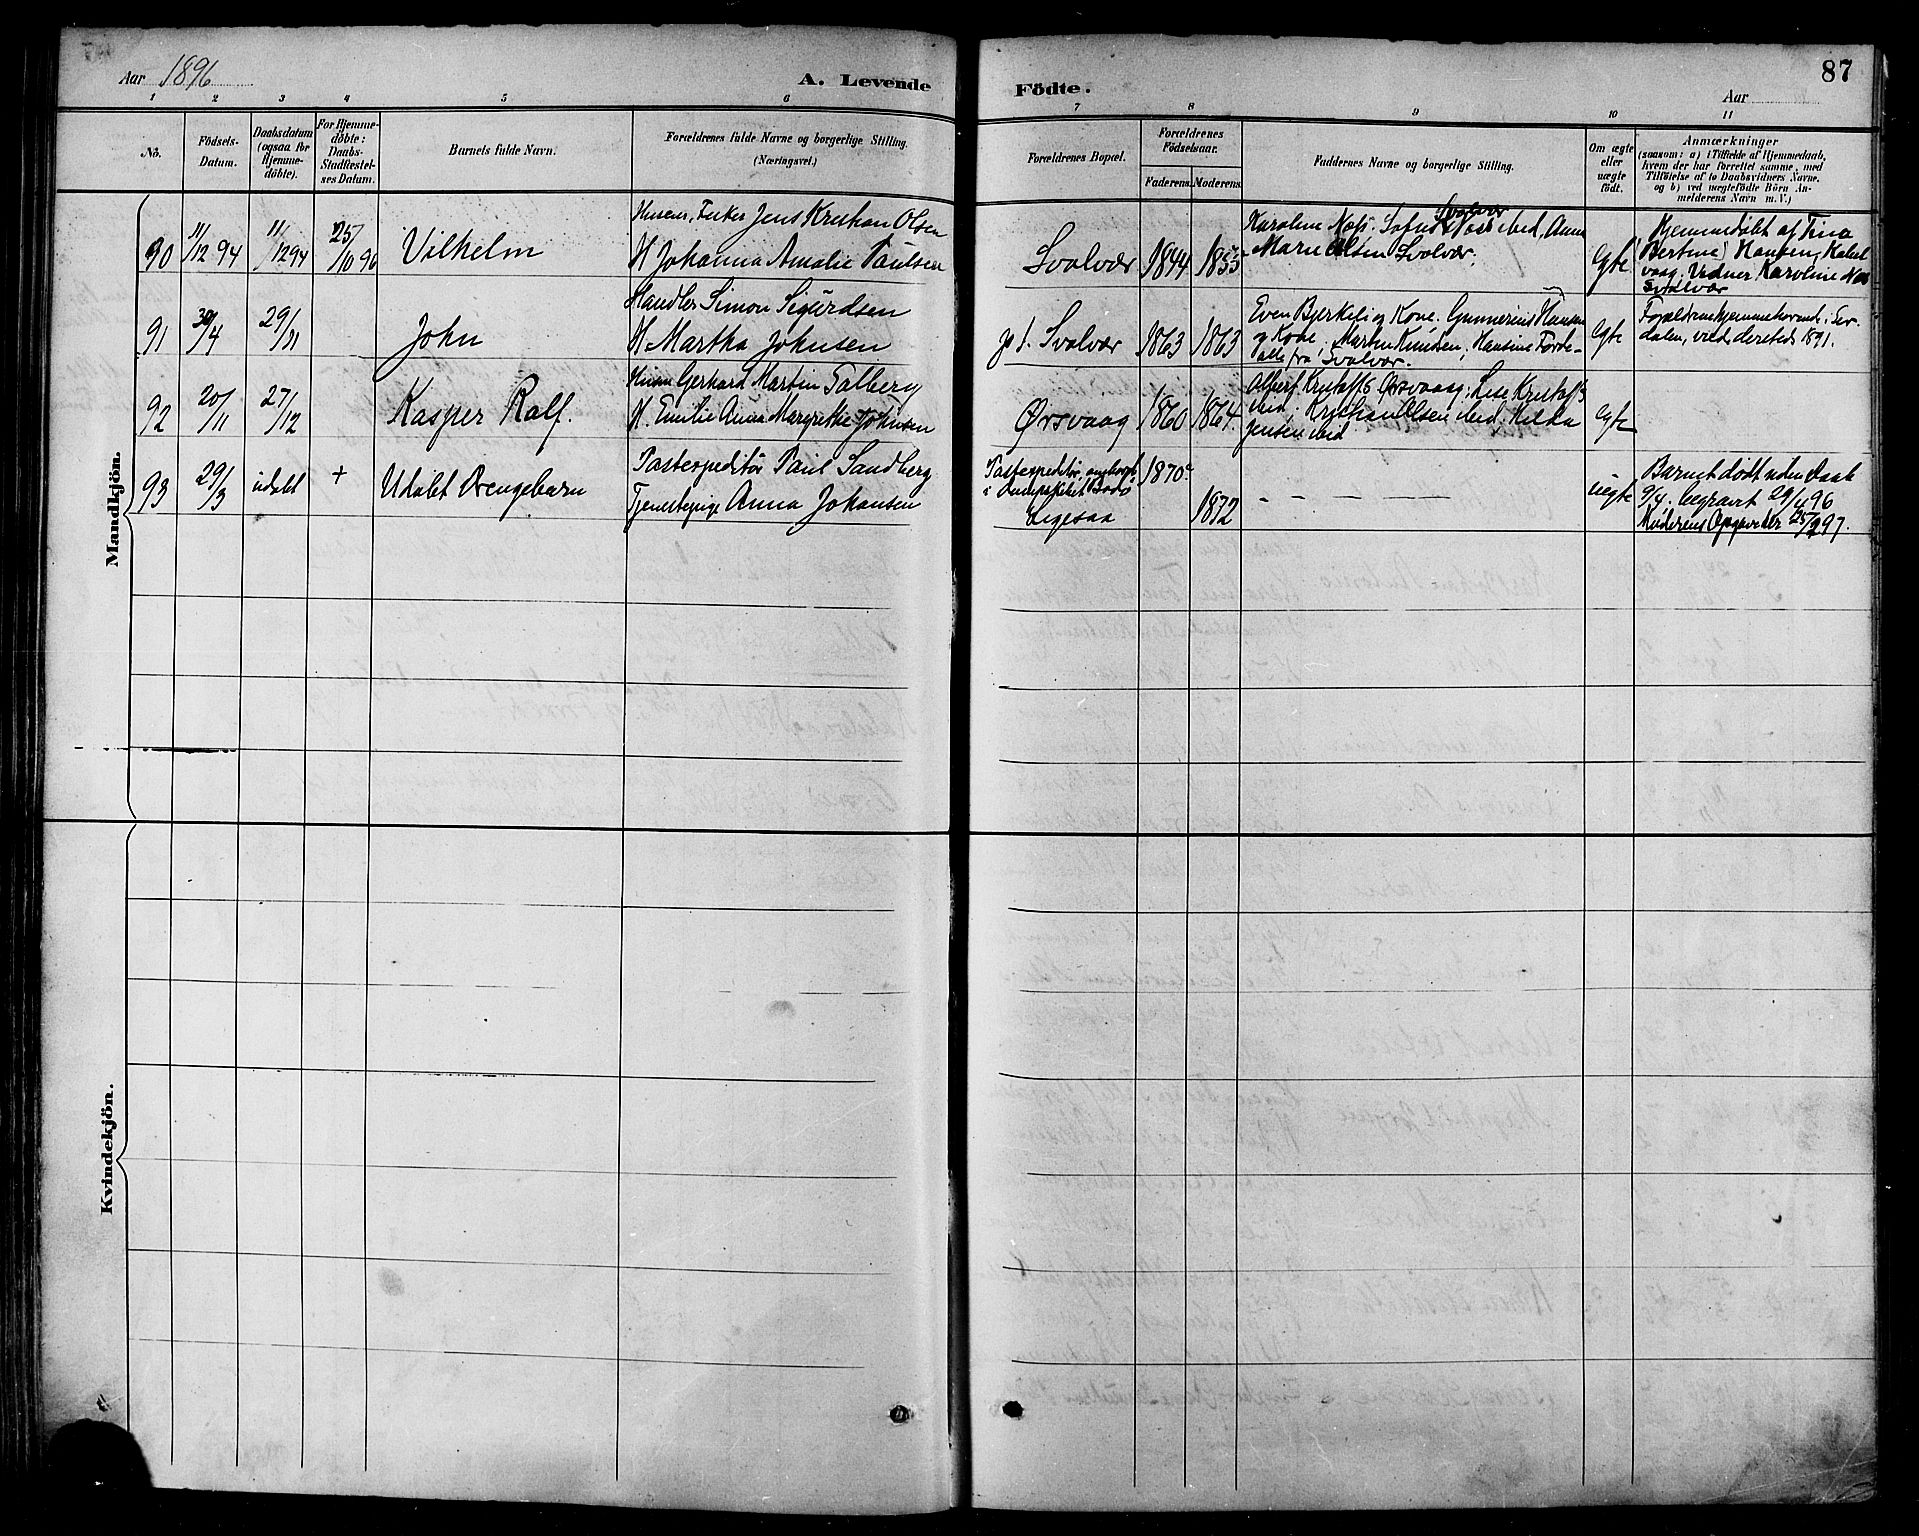 Aar 1896
A. Levende
Födte.
87
Aar
1 2 3 4 5 6 7 8 9 10 11
No.
Födsels-
Datum.
Daabsdatum
(ogsaa for
Hjemme-
döbte).
For Hjemme-
döbte:
Daabs-
Stadfæstel-
ses Datum.
Barnets fulde Navn.
Forældrenes fulde Navne og borgerlige Stilling.
(Næringsvei.)
Forældrenes Bopæl.
Forældrenes
Födselsaar.
Faderens. Moderens.
Faddernes Navne og borgerlige Stilling.
Om ægte
eller
uægte
födt.
Anmærkninger
(saasom: a) i Tilfælde af Hjemmedaab,
hvem der har forrettet samme, med
Tilföielse af to Daabsvidners Navne.
og b) ved uægtefödte Börn An-
melderens Navn m. V.)
Mandkjön.
90
11/12 94
11/12 94
25/10 96
Vilhelm
Husens. Fisker Jens Kristian Olsen
H. Johanna Amalie Paulsen
Svolvær
1844
1855
Svolvær
Karoline Næss. Sofus ibid, Anna
Marie Olsen Svolvær.
egte
Hjemmedøbt af Tina
Bertine Hansen, Kabel
vaag. Vidner Karoline Næs
Svolvær
91
30/4
29/11
John
Handler Simon Sigurdsen
H. Martha Johnsen
Svolvær
1863
1863
Even Bjerkeli og Kone. Gunnerius Hansen
og Kone. Martin Knudsen, Hansine
fra Svolvær.
egte
Forældrene hjemmehørende i
dalen, viede dersteds 1891.
92
20/11
27/12
Kasper Ralf.
Gerhard Martin Falberg
H. Emilie Anna Margrethe Johnsen
Ørsvaag
1860
1864.
Albert Kristoffs Ørsvaag; Lise Kristoffs
ibid; Kristian Olsen ibid, Hilda
Jensen ibid
egte
93
29/3
udøbt
+
Udøbt Drengebarn
Postexpeditør Paul Sandberg
Tjenestepige Anna Johansen
Postexpeditør
i
Ligesaa
1870
1872
– – – –
uegte
Barnet dødt uden Daab
9/4. begravet 29/4 96
Moderens Opgave 25/2 97.
Kvindekjön.